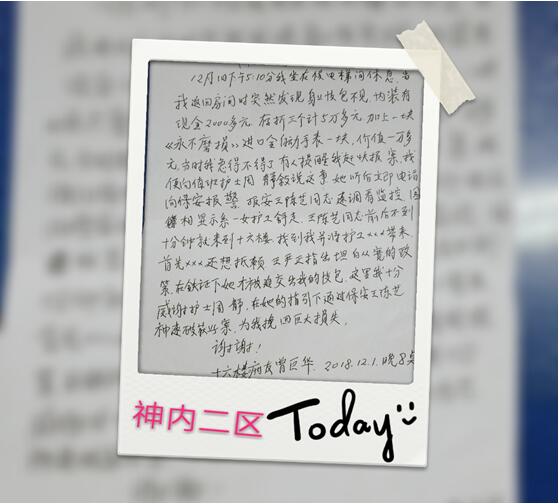 12月1日下午5:10分我坐在候电梯间休息,当
我返回房间时突然发现身上钱包不见,内装有
现金2000多元 存折三个计5万多元 加上一块
《永不磨损》进口全自动手表一块,价值一万多
元.当时我急得不得了 有人提醒我赶快报案,我
便向值班护士周静叙说这事.她听后立即电话
向保安报警.报安王陈艺同志速调看监控 图
相显示系一女护工窃走.王陈艺同志前后不到
十分钟就来到十六楼.找到我并将护工×××带来.
首先×××还想抵赖 王严正指出坦白从宽的政
策.在铁证下她才被迫交出我的钱包.这里我十分
感谢护士周静,在她的指引下通过保安王陈艺
神速破获此案.为我挽回巨大损失.
谢谢!
十六楼病友曾巨华.2018.12.1.晚8点
神内二区 Today